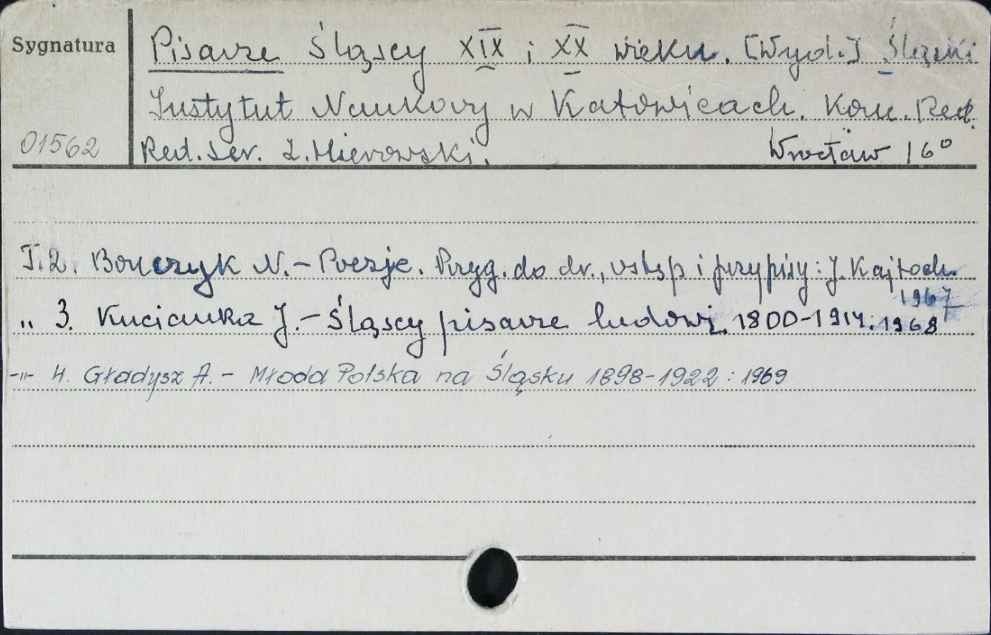 Sygnatura
Pisarze Śląscy XIX i XX wieku. [Wyd.] Śląski
Instytut Naukowy w Katowicach. Kom. Red.
01562
Red. Ser. Z. Hierowski. Wrocław 16°
T. 2. Bonczyk N. – Poezje. Przyg. do dr., wstęp i przypisy: J. Kajtoch.
1967
" 3. Kucianka J. – Śląscy pisarze ludowi 1800–1914. 1968
-"- 4. Gładysz A. – Młoda Polska na Śląsku 1898–1922 : 1969